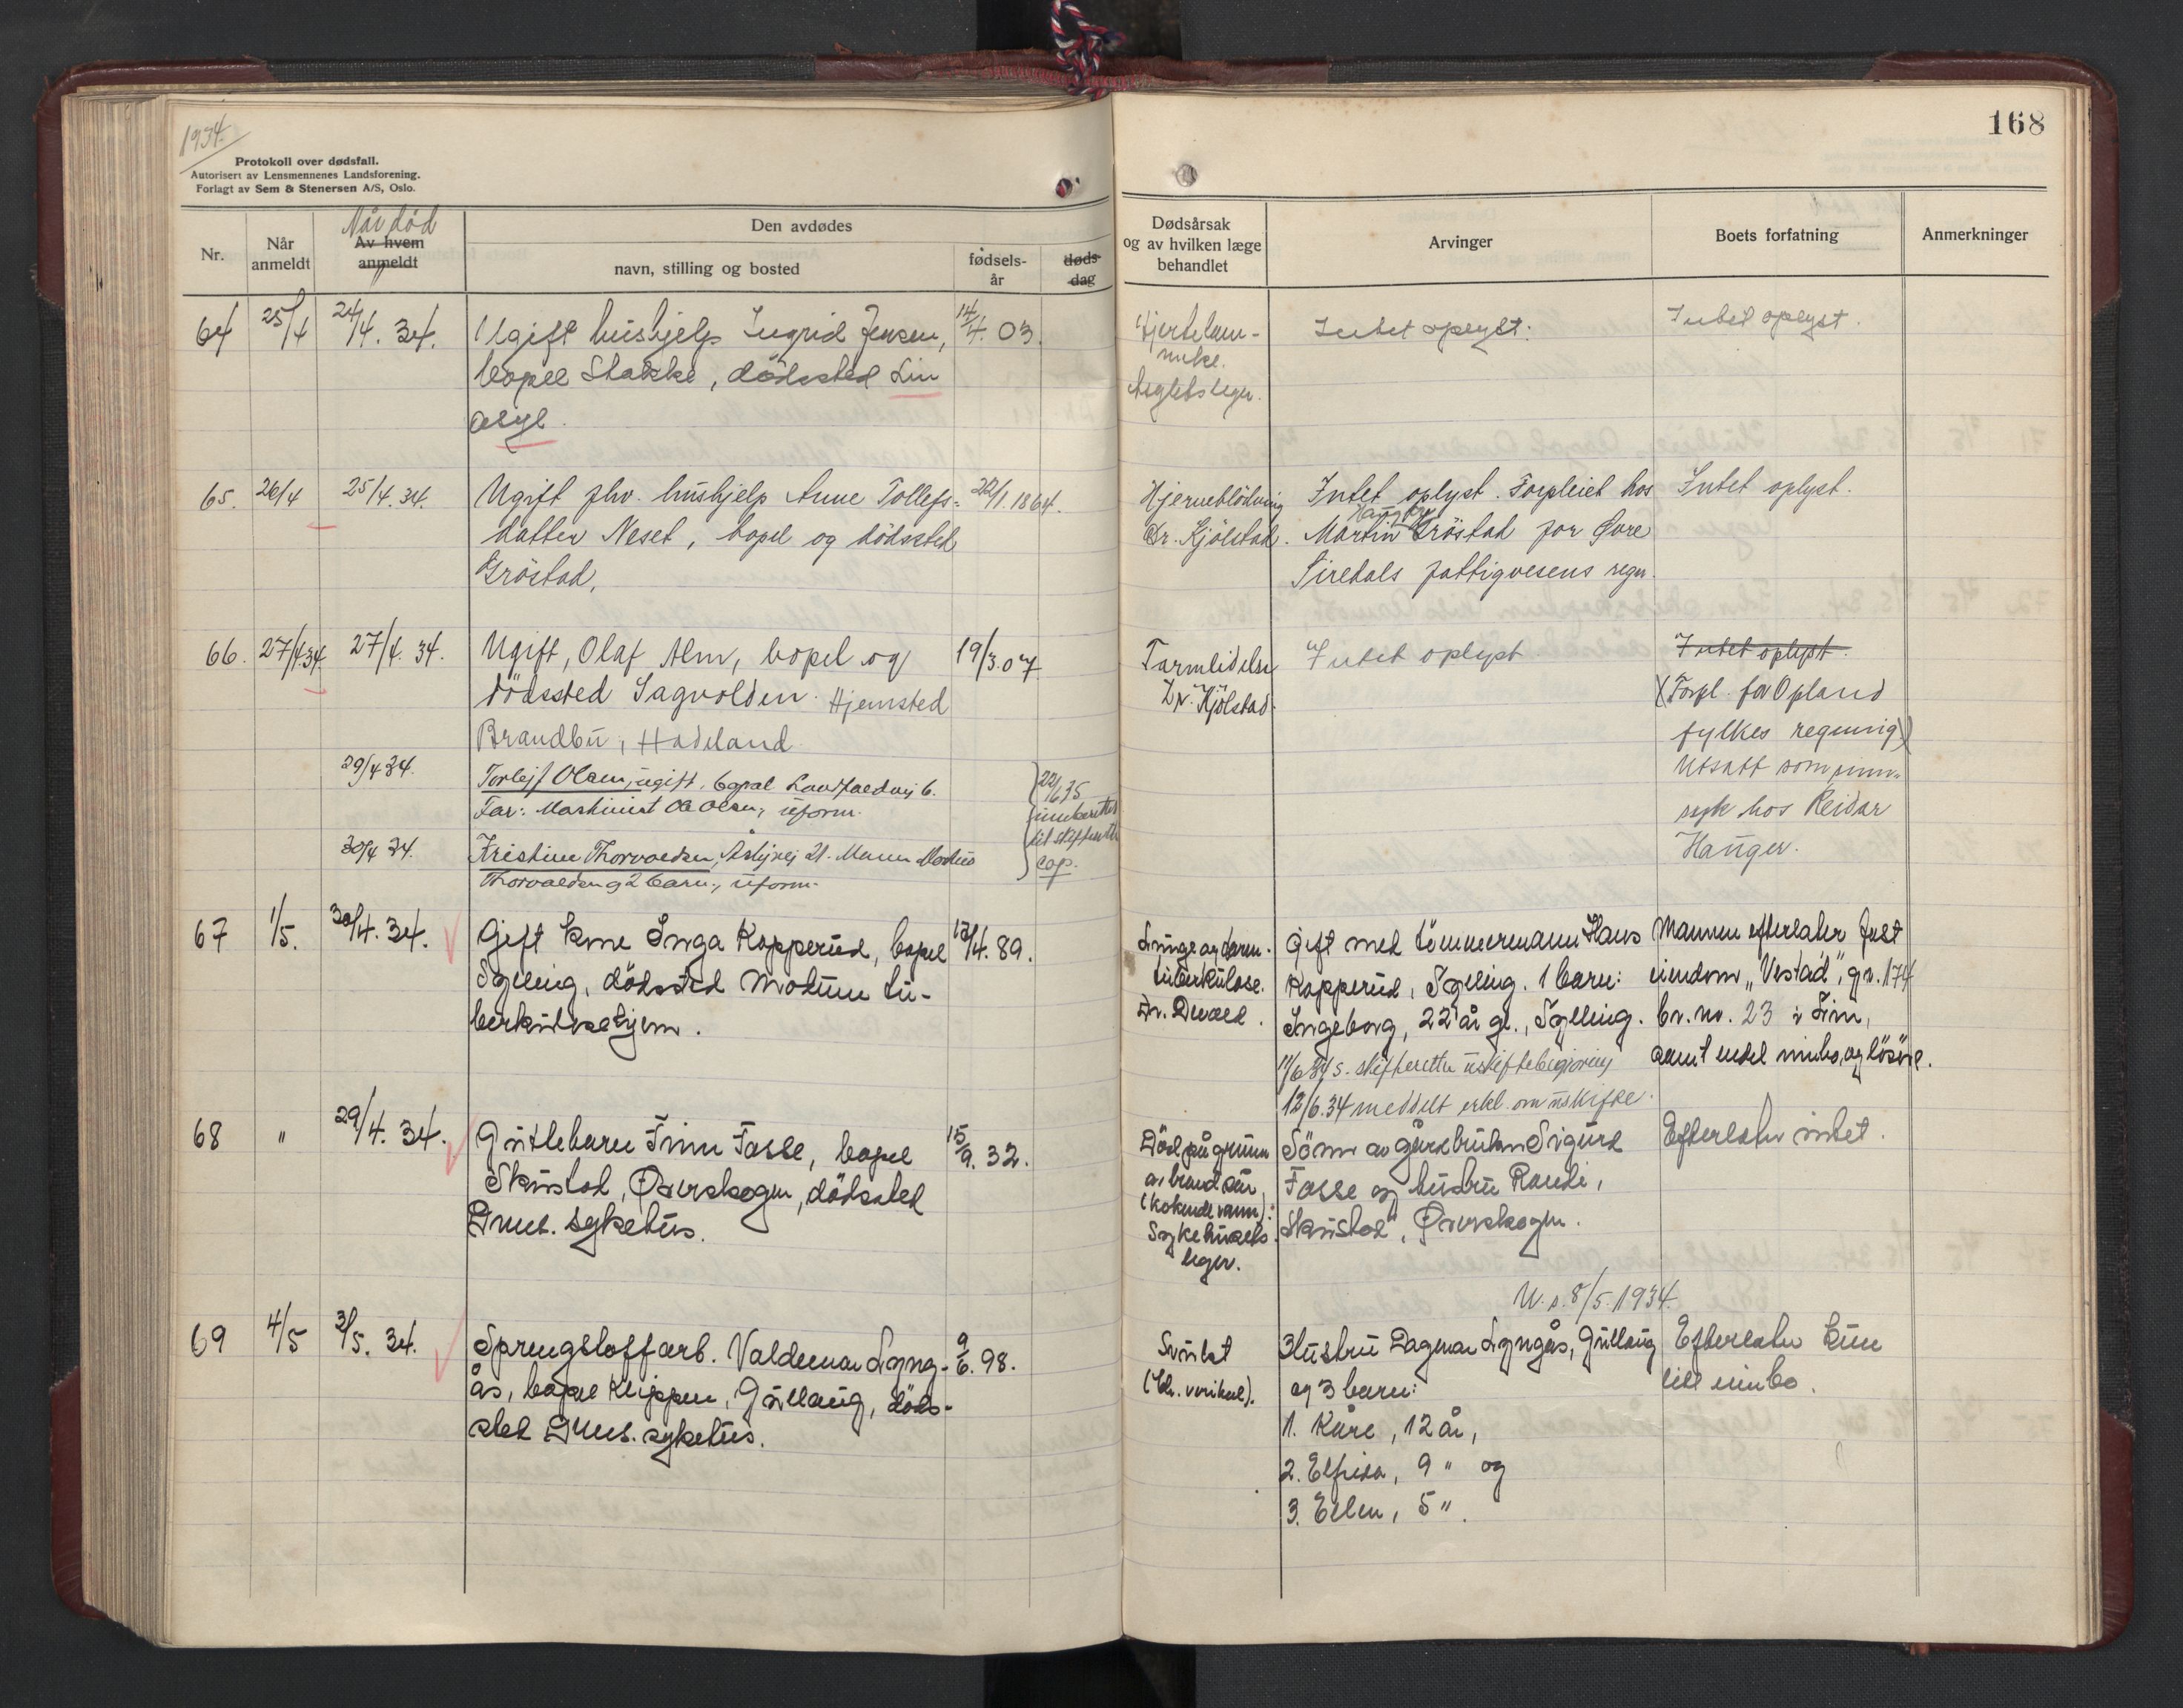 1934.
Protokoll over dødsfall.
Autorisert av Lensmennenes Landsforening.
Forlagt av Sem & Stenersen A/S, Oslo.
168
Nr.
Når anmeldt
Når død
Av hvem anmeldt
Den avdødes
navn, stilling og bosted
fødsels-
år
døds-
dag
Dødsårsak
og av hvilken læge
behandlet
Arvinger
Boets forfatning
Anmerkninger
64 25/4 24/4. 34. Ugift hushjelp Ingrid Jensen, 14/4. 03.
bopel Stakke, dödssted Lin
asyl.
Hjertelam-
melse.
Asylets leger.
Intet oplyst.
Intet oplyst.
65. 26/4 25/4. 34. Ugift fhv. hushjelp Anne Tollefs= 22/1. 1864.
datter Neset, bopel og dödssted
Gröstad.
Hjerneblödning
Dr. Kjölstad.
Intet oplyst. Forpleiet hos
Martin Gröstad for Övre
Siredals fattigvesens regn.
Intet oplyst.
66. 27/4.34. 27/4. 34. Ugift, Olaf Alm, bopel og 19/3. 07.
dödssted Sagvolden. Hjemsted
Brandbu, Hadeland.
Tarmlidelse
Dr. Kjölstad.
Intet oplyst
Intet oplyst.
(Forpl. for Opland
fylkes regning)
Utsatt som sinns-
syk hos Reidar
Hanger.
29/4 34. Torleif Olsen, ugift, bopel Landfaldvej 6.
Far: Maskinist Ole Olsen, uform.
30/4 34. Kristine Thorvaldsen, Åslyvej 21. Mann
Thorvaldsen og 2 barn, uform.
22/6 35
innberettet
til skifterett
cop.
67 1/5. 30/4. 34. Gift kone Inga Kopperud, bopel 13/4. 89.
Sylling, dödssted Modum tu-
berkulosehjem.
Lunge og tarm-
tuberkulose.
Dr.
Gift med tömmermann Hans
Kopperud, Sylling. 1 barn:
Ingeborg, 22 år gl., Sylling.
11/6 34 s. skifteretten uskiftebegjæring
12/6.34 meddelt erkl. om uskifte.
Mannen efterlater fast
eiendom "Vestad", gr. 174
br. nr. 23 i Lier,
samt endel innbo og lösöre.
68 " 29/4. 34. Guttebarn Finn Fosse, bopel 15/9. 32.
Skustad, Överskogen, dödssted
Dmns. sykehus.
Död på grunn
av brandsår
(kokende vann).
Sykehusets
leger.
Sönn av gårdbruker Sigurd
Fosse og hustru Randi,
Skustad, Överskogen.
Efterlater intet.
U. s. 8/5. 1934.
69 4/5 3/5. 34. Sprengstoffarb. Valdemar Lyng- 9/6. 98.
ås, bopel Klippen, Gullaug, döds-
sted Dmns. sykehus.
Svulst
Hustru Dagmar Lyngås, Gullaug
og 3 barn:
1. Kåre, 12 år,
2. Elfrida, 9 " og
3. Ellen, 5 ".
Efterlater kun
litt innbo.